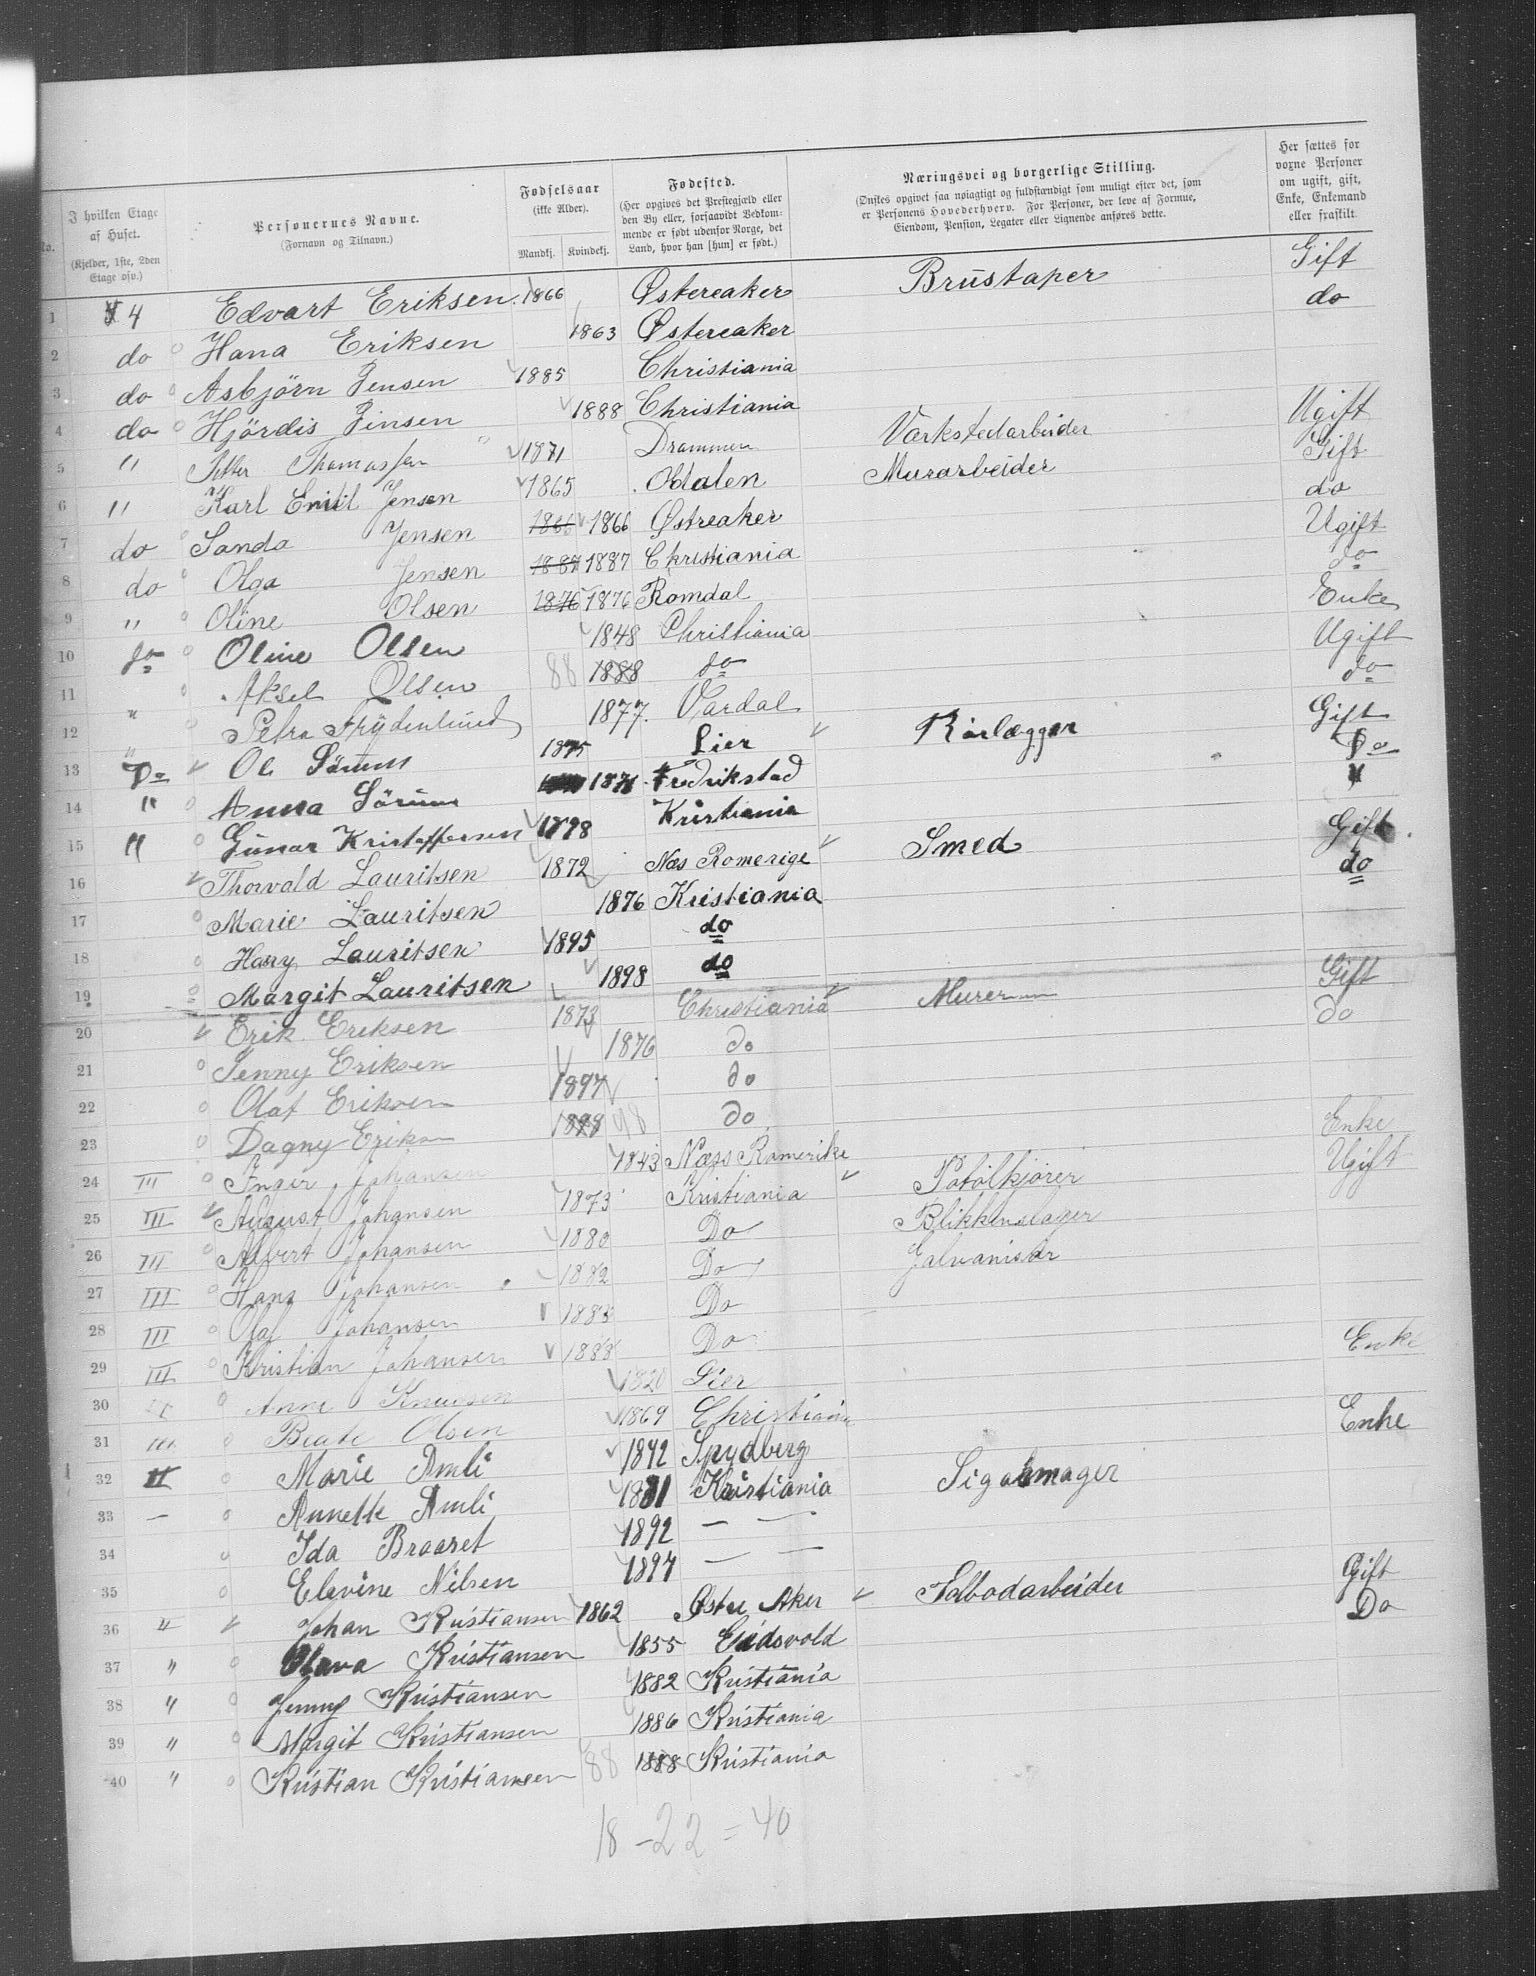 No.
I hvilken Etage af Huset. (Kjelder, 1ste, 2den Etage osv.)
Personernes Navne. (Fornavn og Tilnavn.)
Fødselsaar (ikke Alder). Mandkj. Kvindekj.
Fødested. (Her opgives det Prestegjæld eller den By eller, forsaavidt Bedkommende er født udenfor Norge, det Land, hvor han [hun] er født.)
Næringsvei og borgerlige Stilling. (Ønskes opgivet saa nøiagtigt og fuldstændigt som muligt efter det, som er Personens Hovederhverv. For Personer, der leve af Formue, Eiendom, Pension, Legater eller Lignende anføres dette.
Her sættes for voxne Personer om ugift, gift, Enke, Enkemand eller fraskilt.
1 4 Edvart Eriksen 1866 Østereaker Brustaper Gift
2 do Hana Eriksen 1863 Østereaker do
3 do Asbjörn Jensen 1885 Christiania
4 do Hjördis Jinsen 1888 Christiania
5 " Thomassen 1871 Drammen Værkstedarbeider Ugift
6 " Karl Emil Jensen 1865 Odalen Murarbeider Gift
7 do Sanda Jensen 1866 1866 Østreaker do
8 do Olga Jensen 1887 1887 Christiania Ugift
9 " Oline Olsen 1876 1876 Romdal do
10 do Oline Olsen 1848 Christiania Enke
11 Aksel Olsen 88 1888 do Ugift
12 " Petra Frydenlund 1877 Vardal do
13 Do Ole Sörum 1875 Lier Rörlægger Gift
14 " Anna Sörum 1871 Fredrikstad Do
15 " Gunar Kristoffersen 1898 Kristiania
16 Thorvald Lauritsen 1872 Næs Romerige Smed Gift
17 Marie Lauritsen 1876 Kristiania do
18 Harry Lauritsen 1895 do
19 Margit Lauritsen 1898 do
20 Erik Eriksen 1873 Christiania Murer Gift
21 Jenny Eriksen 1876 do do
22 Olaf Eriksen 1897 do
23 Dagny Eriksen 1898 98 do
24 III Inger Johansen 1843 Næss Romerike Enke
25 III August Johansen 1873 Kristiania Fotölkjörer Ugift
26 III Albert Johansen 1880 Do Blikkenslager
27 III Hans Johansen 1882 Do Galvanisør
28 III Olaf Johansen Do
29 III Kristian Johansen 1888 Do
30 Anne Knudsen 1820 Lier Enke
31 III Beate Olsen 1869 Christiania
32 II Marie Amli 1842 Spydberg Enke
33 — Annette Amli 1881 Kristiania Sigakmager
34 Ida Braaret 1892 — —
35 Elevine Nilsen 1897 — —
36 " Johan Kristiansen 1862 Østre Aker Tolbodarbeider Gift
37 " Olava Kristiansen 1855 Eidsvold Do
38 " Jenny Kristiansen 1882 Kristiania
39 " Margit Kristiansen 1886 Kristiania
40 " Kristian Kristiansen 88 1888 Kristiania
18 – 22 = 40